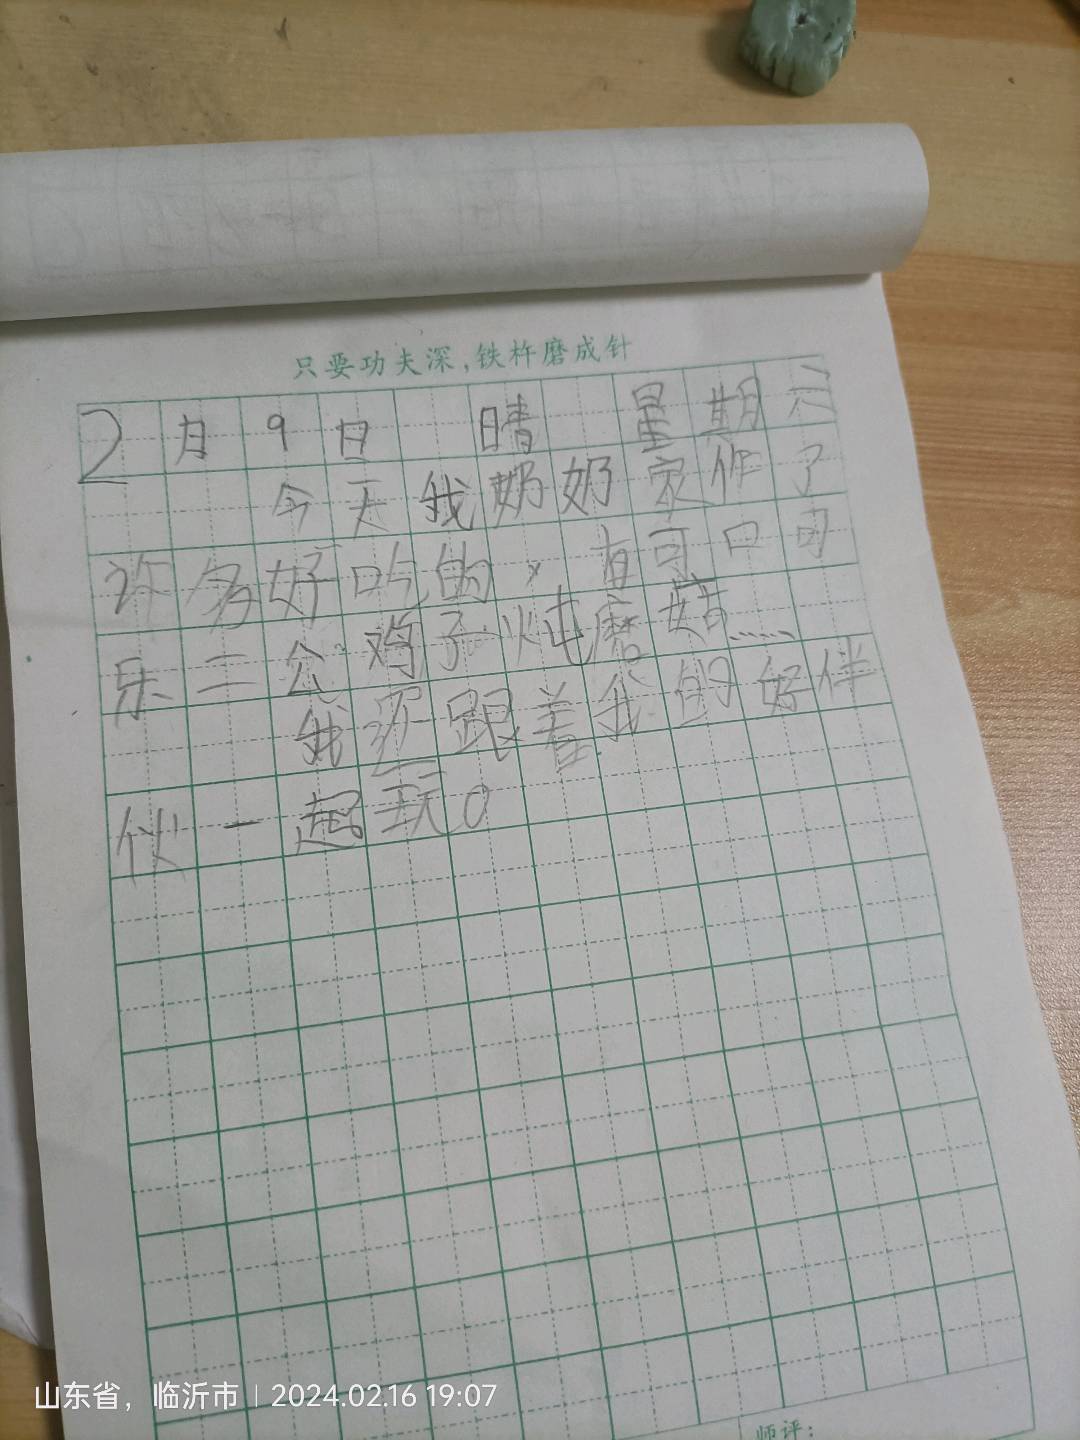 只要功夫深,铁杵磨成针
2月9日 晴 星期六
今天我奶奶家作了
许多好吃的,有可口可
乐二公鸡子炖磨菇……
我还跟着我的好伴
伙一起玩。
师评:
山东省，临沂市 | 2024.02.16 19:07